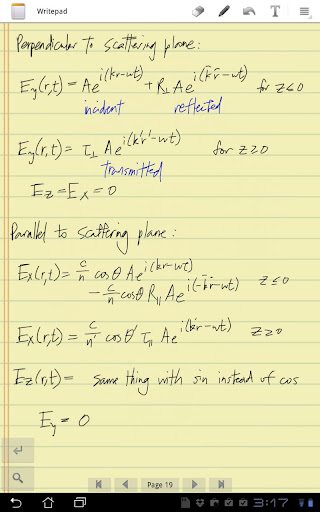 Writepad
Perpendicular to scattering plane:
Ey(r,t) = Ae^i(kr-wt) + R⊥ Ae^i(k̄r-wt) for z≤0
incident reflected
Ey(r,t) = τ⊥ Ae^i(k'r'-wt) for z≥0
transmitted
Ez = Ex = 0
Parallel to scattering plane:
Ex(r,t) = c/n cosθ Ae^i(kr-wt)
- c/n cosθ R∥ Ae^i(-k̄r-wt) z≤0
Ex(r,t) = c/n' cosθ' τ∥ Ae^i(k'r-wt) z≥0
Ez(r,t) = same thing with sin instead of cos
Ey = 0
Page 19
3:17